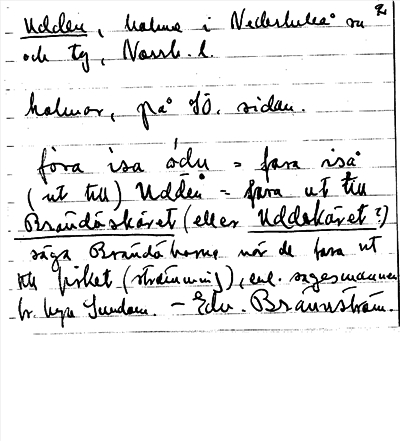 Udden, holme i Nederluleå sn
och tg, Norrb. l.
holmar, på SÖ. sidan.
fóra isa ódn = fara iså
(ut till) Uddån = fara ut till
Brändöskäret (eller Uddskäret?)
säga Brändöborna när de fara ut
till fisket (strömming), enl. sagesmannen
Sundom. – Edv. Brännström.